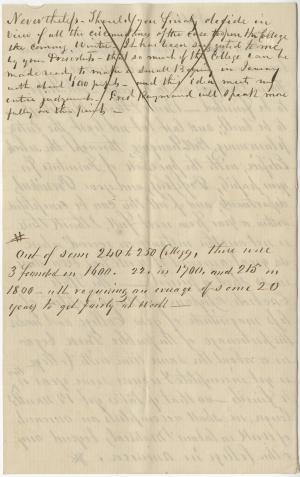 Nevertheless - Should you finally decide in
view of all the circumstances of the case to open the College
the coming Winter, It has been suggested to me
by your President - that so much of the College can be
made ready to make a small Begining in January
with about 100 pupils - and this idea meets my
entire judgement. Prest Raymond will speak more
fully on this point -
#
Out of some 240 to 250 Colleges, there were
3 founded in 1600. 22. in 1700, and 215 in
1800 - all requiring an average of some 20
years to get fairly at work -